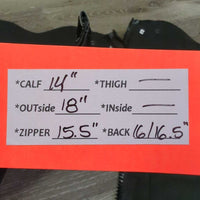 *CALF 14" *THIGH —
*OUTside 18" *INside —
*ZIPPER 15.5" *BACK 16/16.5"